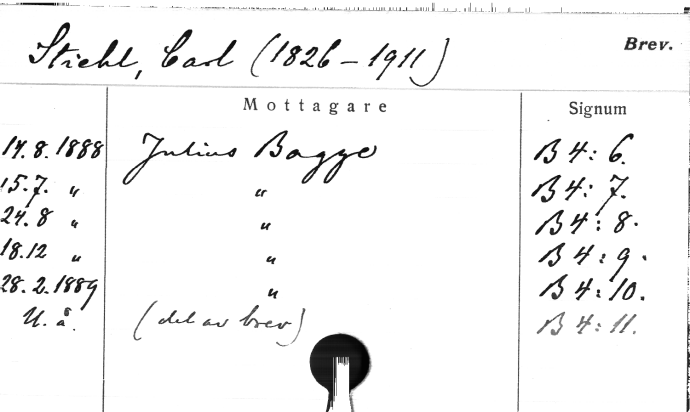 Stiehl, Carl (1826-1911) Brev.
Mottagare Signum
14.8.1888 Julius Bagge B 4:6.
15.7. " " B 4:7.
24.8 " " B 4:8.
18.12 " " B 4:9.
28.2.1889 " B 4:10.
U.å. (del av brev) B 4:11.